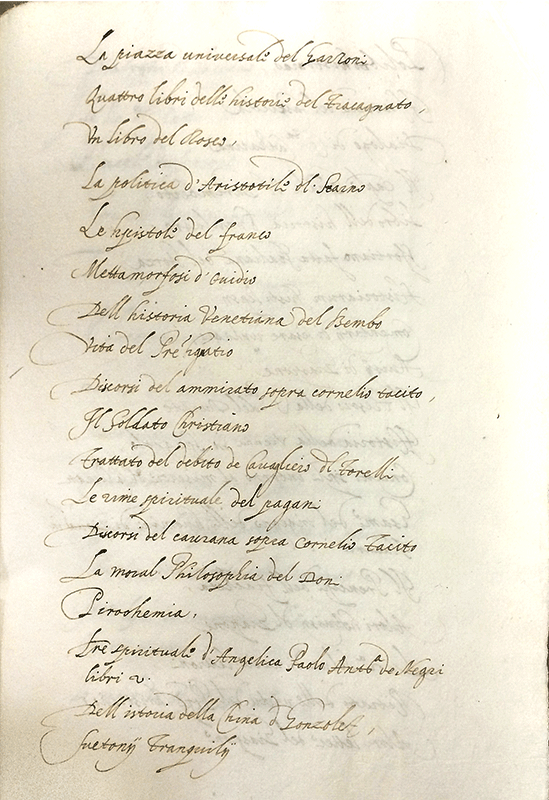 La piazza universale del Garzoni
Quattro libri delle historie del Tracagnato,
Un libro del Roseo,
La politica d'Aristotile del Scaino
Le Epistole del franco
Mettamorfosi d'Ouidio
Dell'historia Venetiana del Bembo
Vita del Pre Ignatio
Discorsi del ammirato sopra cornelio tacito,
Il Soldato Christiano
Trattato del debito de Cavagliero del Torelli
Le rime spirituale del pagani
Discorsi del caurana sopra Cornelio Tacito
La moral Philosophia del Doni
Pirothemia,
Tre spirituale d'Angelica Paolo Anta de Negri
libri 2.
Dell'istoria della China d Gonzolez,
Suetonij Tranquilij